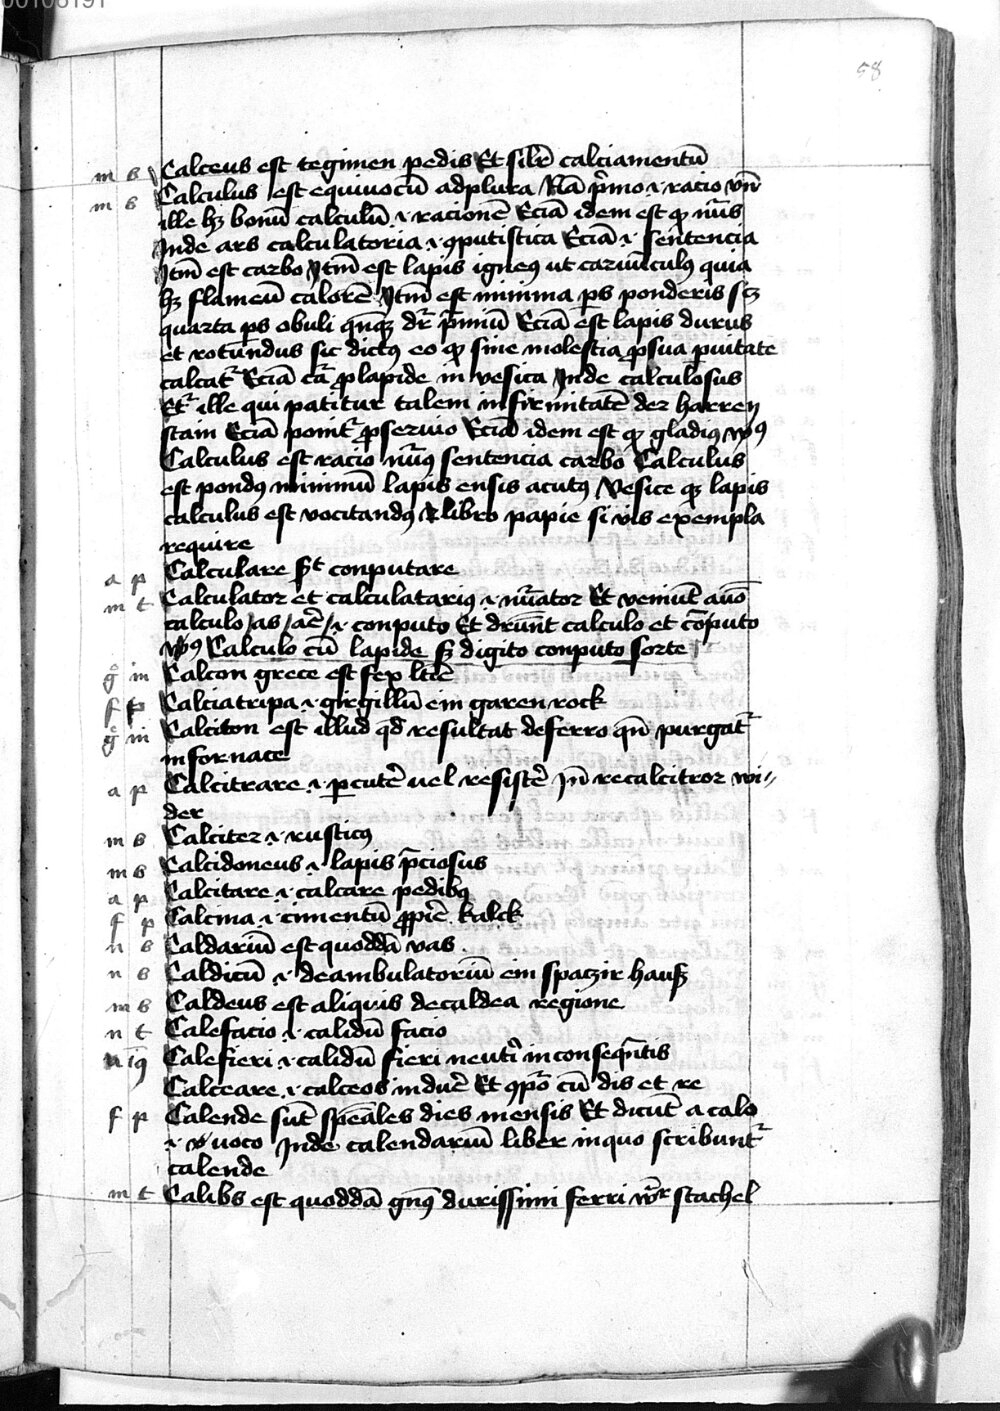 00108191
58
m s Calceus est tegimen pedis Et silr̄ calciamentū
m s Calculus est equiuocū adplura Nā p̄mo .i. racio vn̄
ille hꝫ bonū calculū .i. racionē Eciā idem est qꝫ nūs
Inde ars calculatoria .i. ꝯputistica Eciā .i. sentencia
Itm̄ est carbo Itm̄ est lapis igneꝰ ut carūnculꝰ quia
hꝫ flameū calorē Itm̄ est minima ps ponderis scꝫ
quarta ps obuli dr̄ p̄miū Eciā est lapis durus
et rotundus sic dictꝰ eo qꝫ sine molestia ꝑsua ꝑuitate
calcat᷑ Eciā lapide in vesica Inde calculosus
Et᷑ ille qui patitur talem infirmitatē der harren
stain Eciā ponit᷑ ꝓseruo Eciā idem est qꝫ gladiꝰ vꝰ
Calculus est racio nūꝰ sentencia carbo Calculus
est pondꝰ minimū lapis ensis acutꝰ Vesice qꝫ lapis
calculus est vocitandꝰ libro papie si vis exempla
require
a p Calculare st conputare
m t Calculator et calculatariꝰ .i. nūator Et veniūt
calculo /as /arē/ .i. conputo Et dr̄unt calculo et cōputo
vꝰ Calculo cū lapide sꝫ digito conputo sorte
g̊ in Calcon grece est fex
f p Calciatripa .i. girgillū ein garenrock
g̊ in Calciton est illud qd̄ resultat deferro qn̄ purgat᷑
in fornace
a p Calcitrare .i. ꝑcutē uel resistē Jn̄ recalcitror wi//
der
m s Calciter .i. rusticꝰ
m s Calcidoneus .i. lapis p̄ciosus
a p Calcitare .i. calcare pedibꝰ
f p Calcina .i. cimentū ꝓpiē kalck
n s Caldariū est quoddā vas
n s Caldicū .i. deambulatoriū ein spaczir hauß
m s Caldeus est aliquis decaldea regione
n t Calefacio .i. calidū facio
n iꝗ Calefieri .i. calidū fieri neut᷑i inconseqn̄tis
Calceare .i. calceos induē Et ꝯpō cū dis et re
f p Calende sūt spēales dies mensis Et dicūt a calo
.i. voco Inde calendariū liber inquo scribunt᷑
calende
m t Calibs est quoddā gn̄ꝰ durissimi ferri stachel